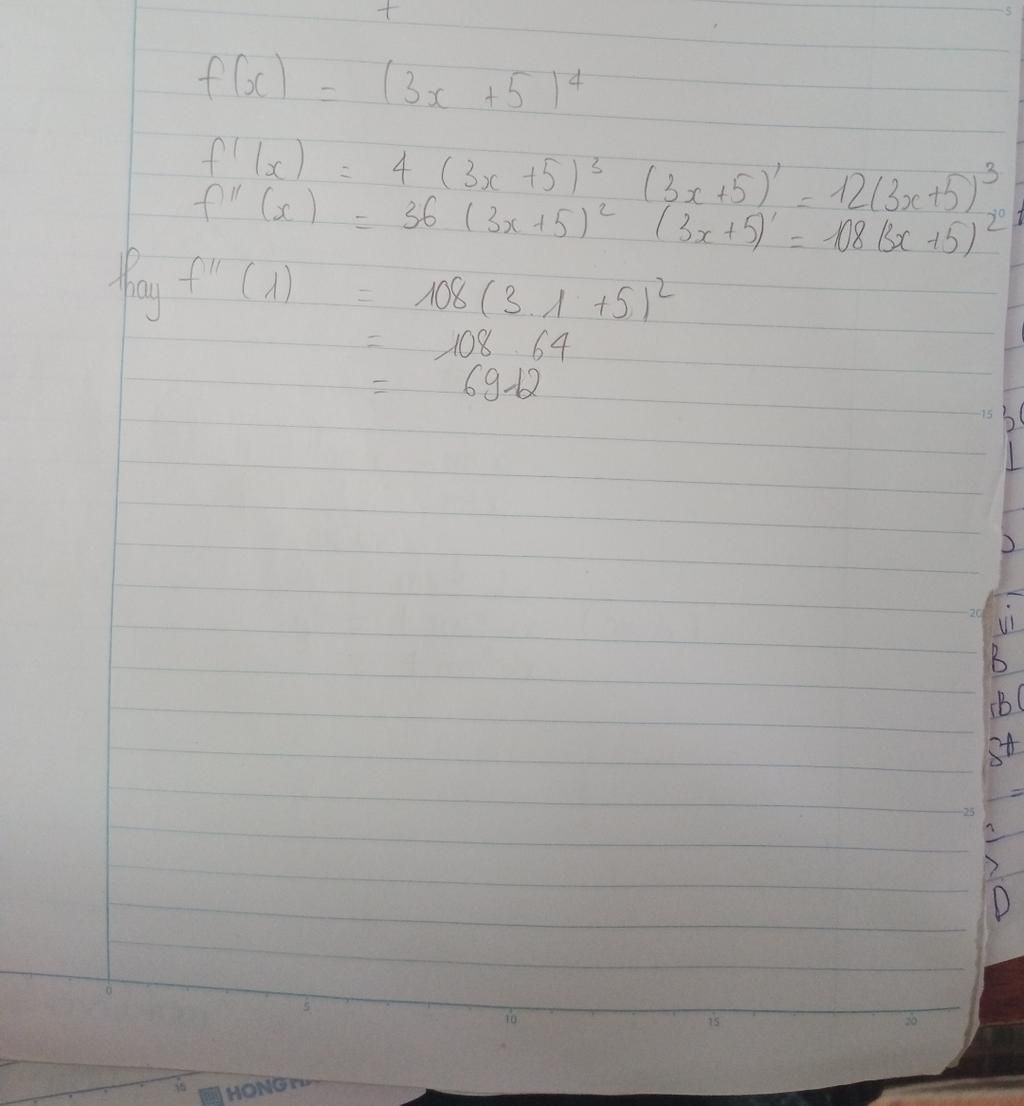 f(x) = (3x +5)⁴
f'(x) = 4 (3x +5)³ (3x+5)' = 12(3x+5)³
f''(x) = 36 (3x+5)² (3x+5)' = 108(3x +5)²
thay f''(1) = 108(3.1 +5)²
= 108 . 64
= 6912
5
10
15
20
25
0
5
10
15
20
B
D